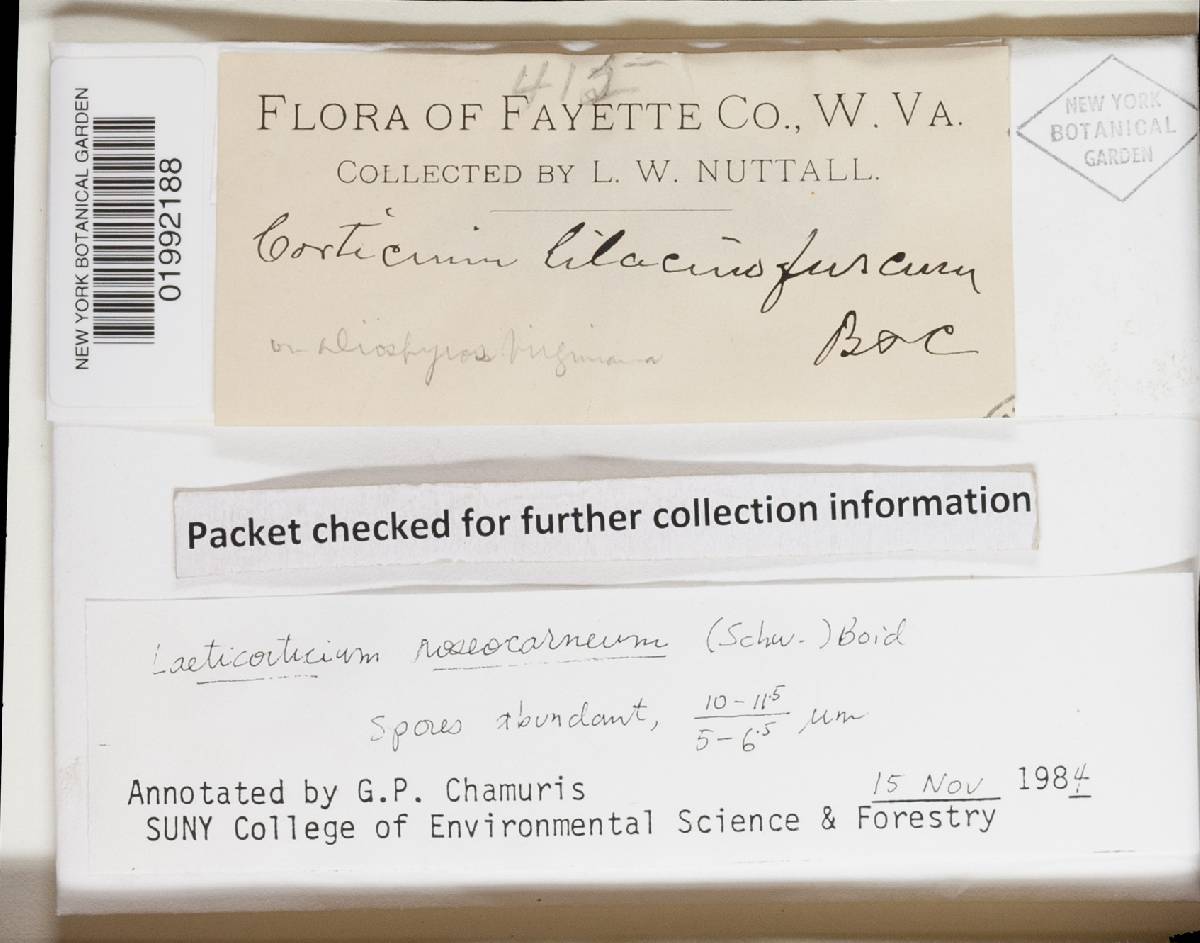 NEW YORK BOTANICAL GARDEN
01992188
415
FLORA OF FAYETTE CO., W. VA.
COLLECTED BY L. W. NUTTALL.
Corticium lilacinofuscum
B & C
on Diospyros Virginiana
NEW YORK
BOTANICAL
GARDEN
Packet checked for further collection information
Laeticorticium roseocarneum (Schw.) Boid
Spores abundant, 10-11.5 / 5-6.5 µm
Annotated by G.P. Chamuris 15 Nov 1984
SUNY College of Environmental Science & Forestry